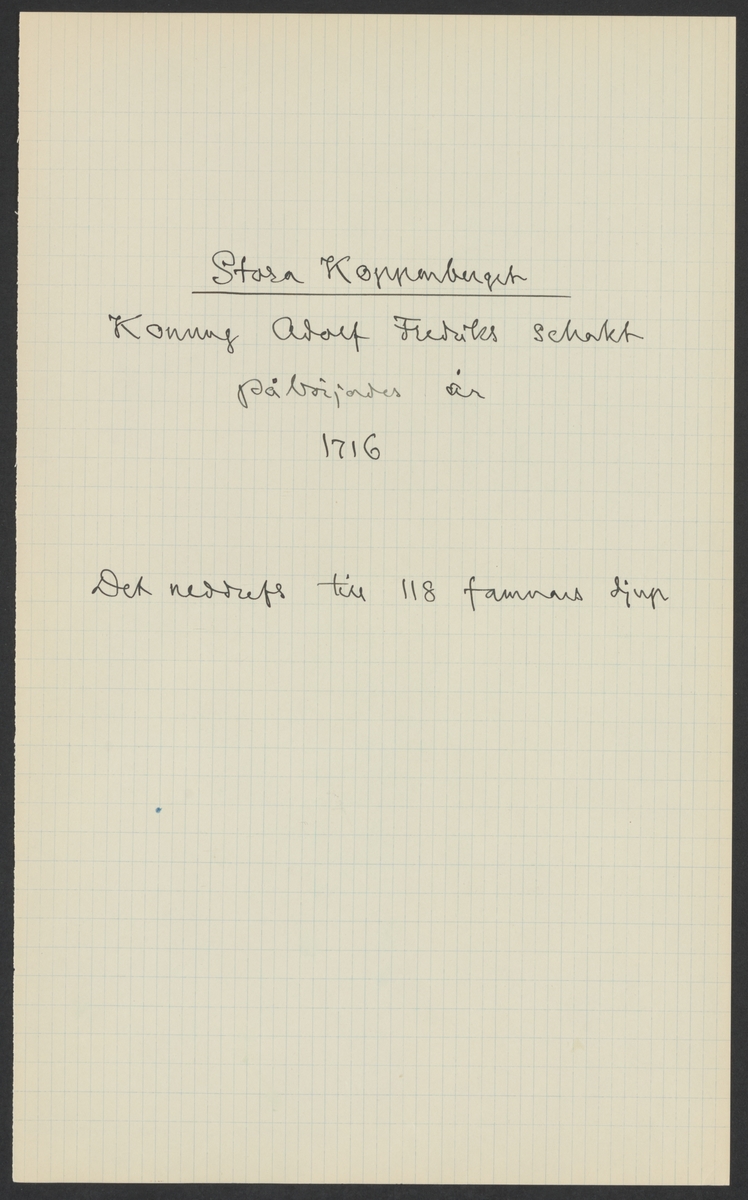 Stora Kopparberget
Konung Adolf Fredriks schakt
påbörjades år
1716
Det neddrefs till 118 famnars djup